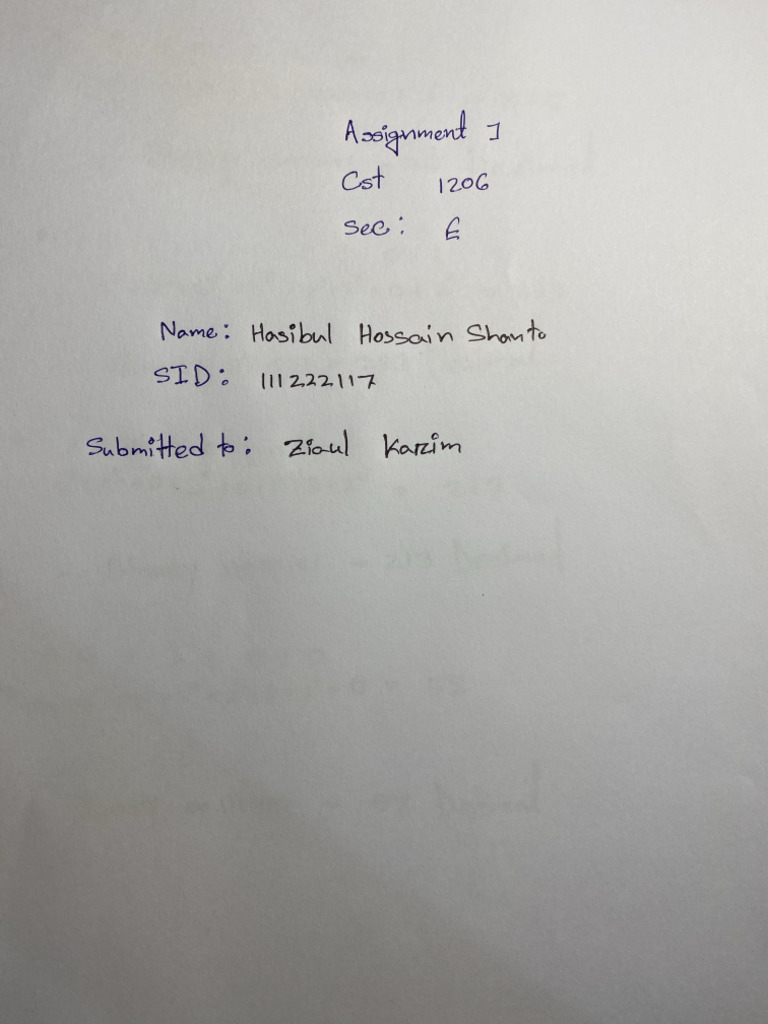 Assignment 1
Cst 1206
Sec: E
Name: Hasibul Hossain Shanto
SID: 111222117
Submitted to: Ziaul Karim